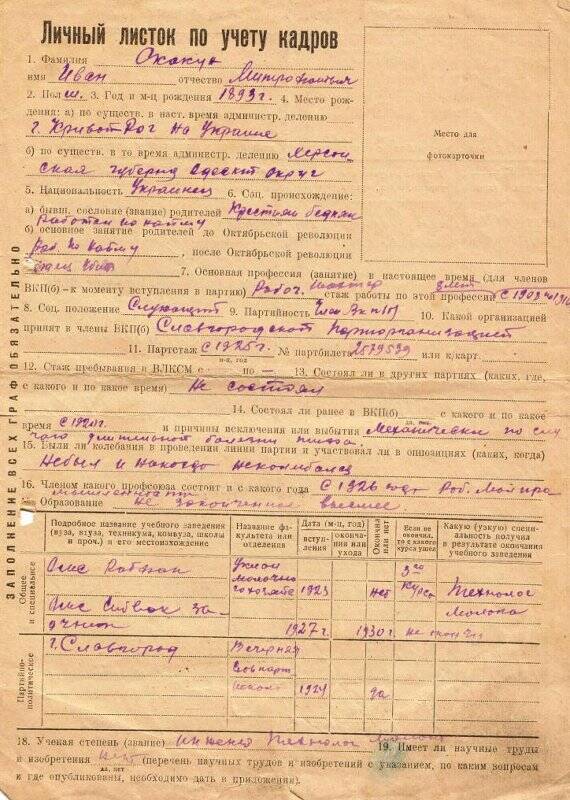 Личный листок по учету кадров
1. Фамилия
имя Иван отчество Митрофанович
2. Пол м. 3. Год и м-ц рождения 1893 г. 4. Место рож-
дения: а) по существ. в наст. время административ. делению
г. Кривой Рог на Украине
б) по существ. в то время администр. делению Херсон-
ская губерния Одесский округ
Место для
фотокарточки
5. Национальность Украинец 6. Соц. происхождение:
а) бывш. сословие (звание) родителей Крестьяни бедняки
работали по найму
б) основное занятие родителей до Октябрьской революции
Раб. по найму, после Октябрьской
революции отец 7. Основная профессия (занятие) в настоящее время (для членов
ВКП(б) — к моменту вступления в партию) Рабоч. шахтер стаж работы по этой профессии с 1903
8. Соц. положение Служащий 9. Партийность Член ВКП(б) 10. Какой организацией
принят в члены ВКП(б) Славгородской парторганизацией
11. Партстаж с 1925 г. № партбилета 2579539 или к/карт.
м-ц, год
12. Стаж пребывания в ВЛКСМ с — по — 13. Состоял ли в других партиях (каких, где,
с какого и по какое время) Не состоял
14. Состоял ли ранее в ВКП(б) с какого и по какое
да, нет
время с 1920 г. и причины исключения или выбытия Механически по слу-
чаю длительной болезни тифа.
15. Были ли колебания в проведении линии партии и участвовал ли в оппозициях (каких, когда)
Не был и никогда не колебался
16. Членом какого профсоюза состоит и с какого года С 1926 года Раб.
Образование не законченное высшее
ЗАПОЛНЕНИЕ ВСЕХ ГРАФ ОБЯЗАТЕЛЬНО
Подробное название учебного заведения (вуза, втуза, техникума, комвуза, школы и проч.) и его местонахождение
Название факультета или отделения
Дата (м-ц, год)
вступления
окончания или ухода
Окончил или нет
Если не окончил, то с какого курса ушел
Какую (узкую) специальность получил в результате окончания учебного заведения
Общее и специальное
Омс Рабфак
молочно
1923
нет
3го курса
Технолог молока
Омс Сибвок заочник
1927 г.
1930 г.
не
Партийно-политическое
г. Славгород
Вечерняя Совпарт школа
1924
да
18. Ученая степень (звание) инженер технолог молока 19. Имеет ли научные труды
и изобретения нет (перечень научных трудов и изобретений с указанием, по каким вопросам
да, нет
и где опубликованы, необходимо дать в приложении).